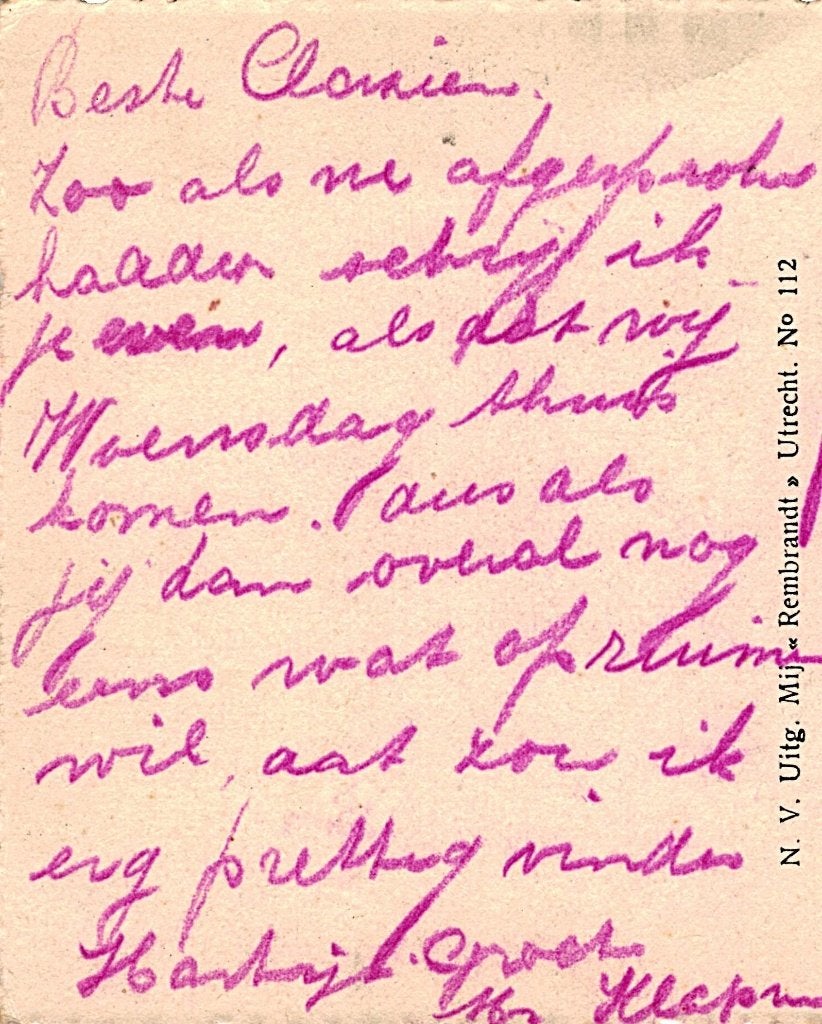 Beste Clasien.
Zoo als we afgesproken
hadden schrijf ik
je even, als dat wij
Woensdag thuis
komen. dus als
jij dan overal nog
eens wat opruimen
wil, dat zou ik
erg prettig vinden
Hartelijk. Groet
N. V. Uitg. Mij « Rembrandt » Utrecht. No 112